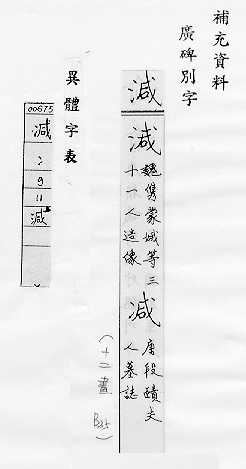 補充資料
廣碑別字
減
減 魏雋蒙娥等三
十一人造像
減 唐段蹟夫
人墓誌
(十二畫 B25)
異體字表
00675
減
氵
9
11
減